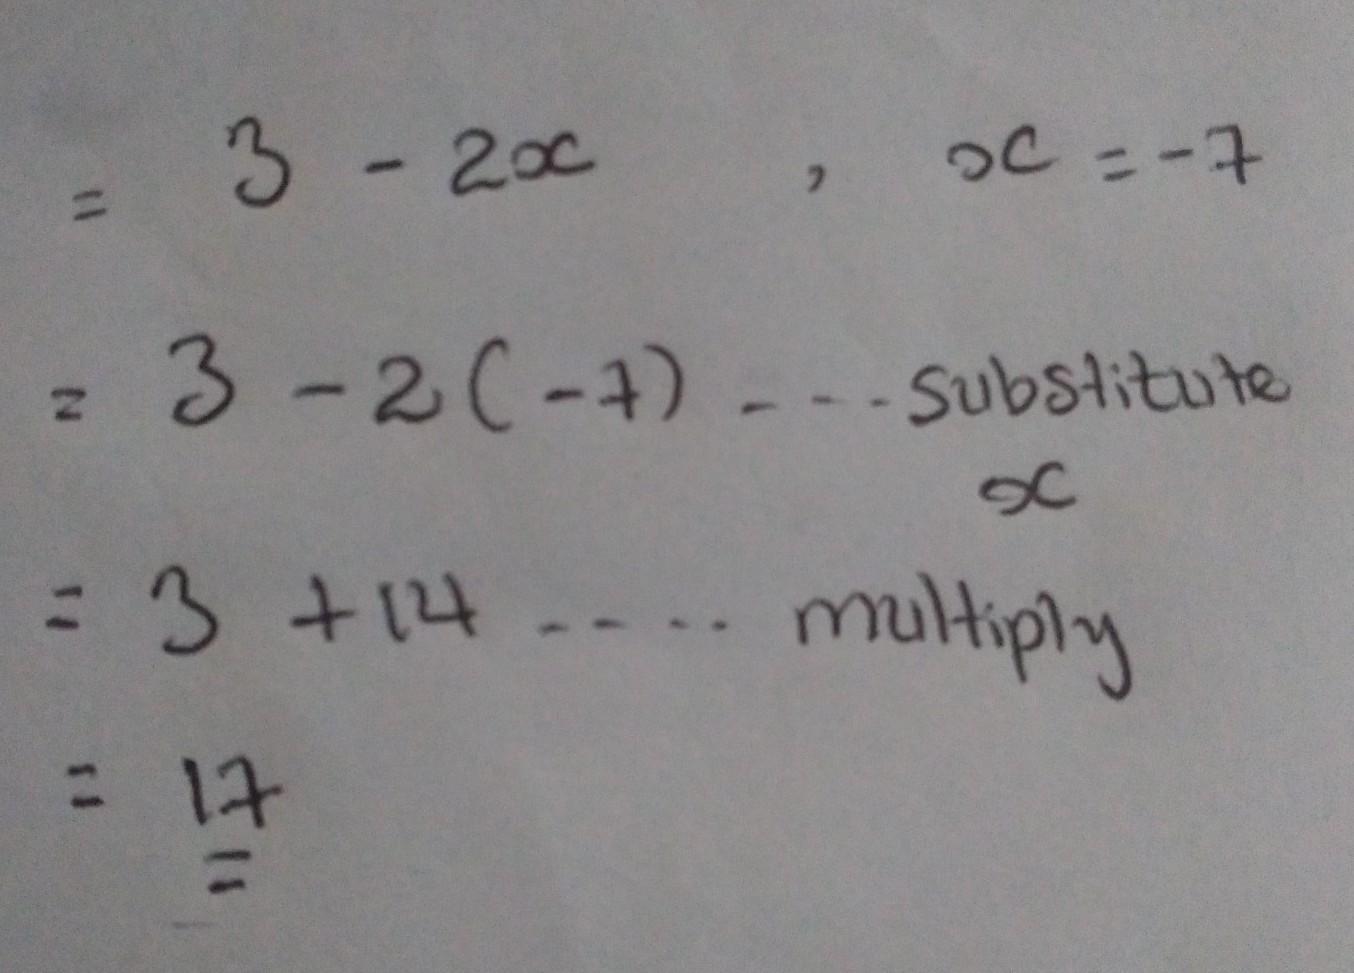 = 3 - 2x , x = -7
= 3 - 2(-7) - - - - substitute
x
= 3 + 14 - - - - multiply
= 17